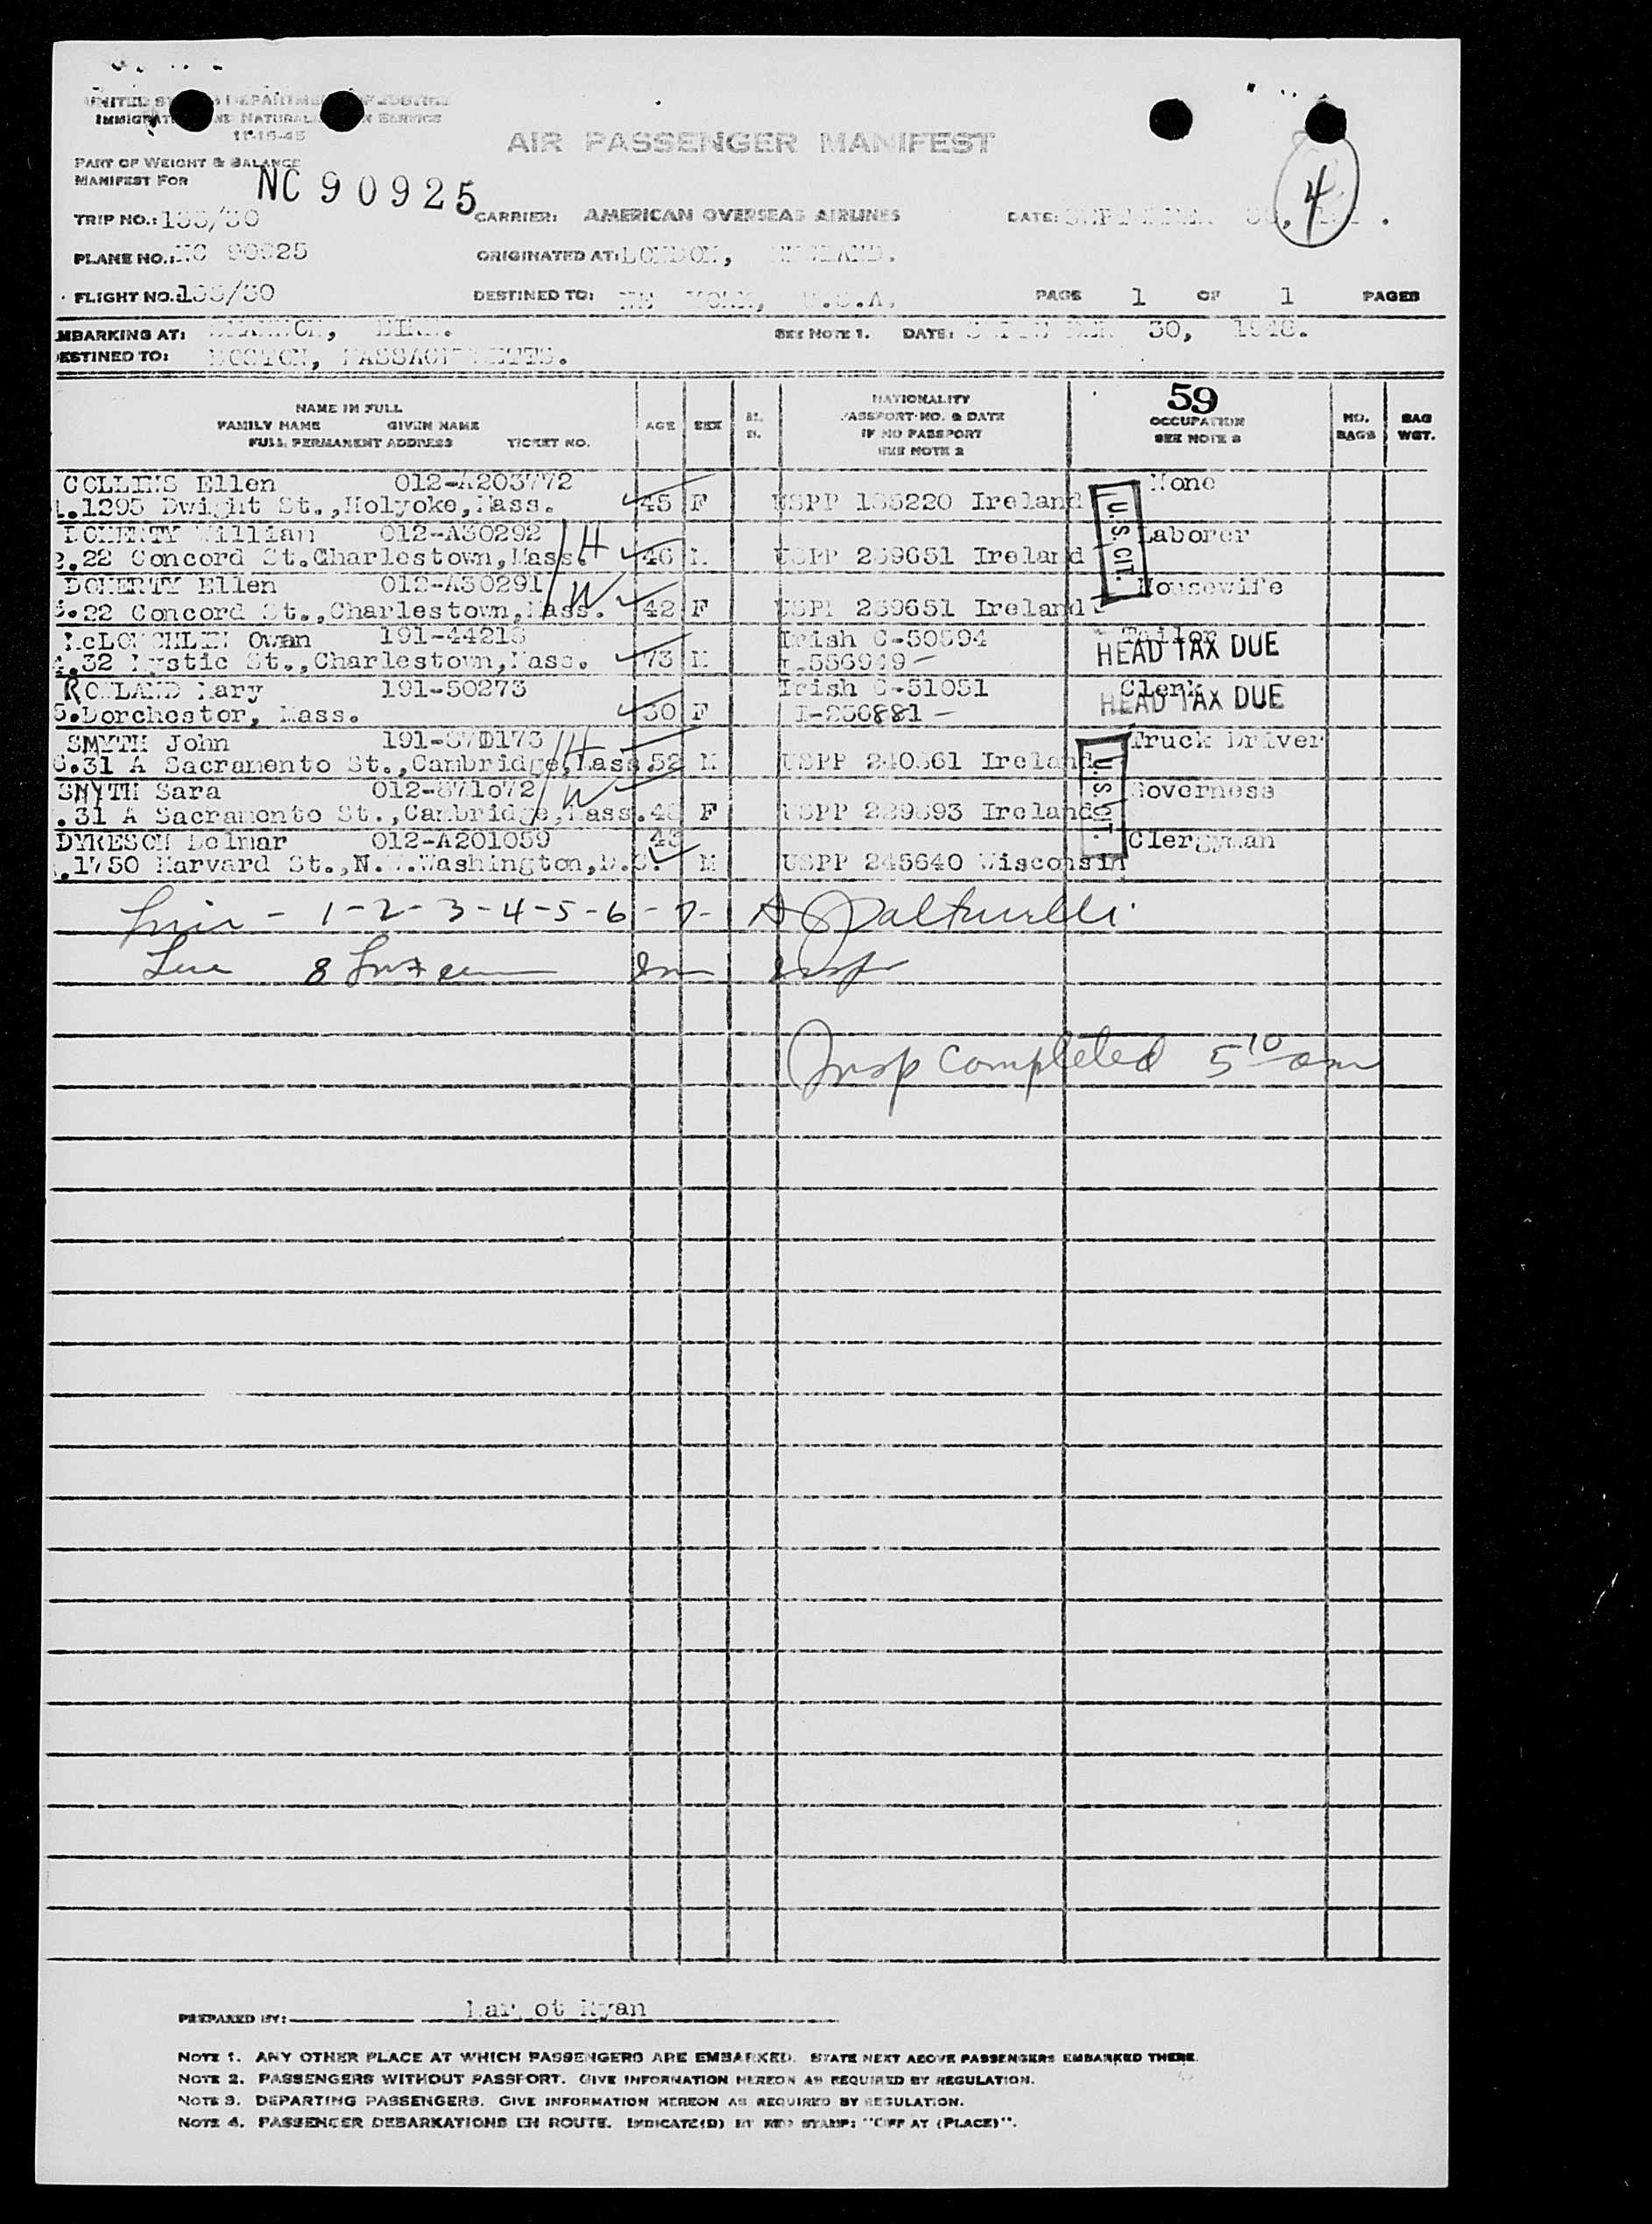 UNITED STATES DEPARTMENT OF JUSTICE
IMMIGRATION AND NATURALIZATION SERVICE
11-15-45
AIR PASSENGER MANIFEST
4
PART OF WEIGHT & BALANCE
MANIFEST FOR NC 90925
TRIP NO.: CARRIER: AMERICAN OVERSEAS AIRLINES DATE: SEPTEMBER
PLANE NO.: NC 90925 ORIGINATED AT: LONDON, ENGLAND.
FLIGHT NO. DESTINED TO: NEW YORK, U.S.A. PAGE 1 OF 1 PAGES
MBARKING AT: SHANNON, EIRE. SEE NOTE 1. DATE: SEPTEMBER 30, 1948.
ESTINED TO: BOSTON, MASSACHUSETTS.
59
NAME IN FULL
FAMILY NAME GIVEN NAME
FULL PERMANENT ADDRESS TICKET NO.
AGE SEX
NATIONALITY
PASSPORT NO. & DATE
IF NO PASSPORT
SEE NOTE 2
OCCUPATION
SEE NOTE 3
NO. BAGS
BAG WGT.
COLLINS Ellen 012-A203772 None
1.1295 Dwight St.,Holyoke,Mass. 45 F USPP 135220 Ireland
DOHERTY William 012-A30292 H Laborer
2.22 Concord St.Charlestown,Mass. 46 M USPP 239651 Ireland
U.S. CIT.
DOHERTY Ellen 012-A30291 W Housewife
3.22 Concord St.,Charlestown,Mass. 42 F USPP 239651 Ireland
McLOUGHLIN Owen 191-44213 Irish C-50594 Tailor
4.32 Mystic St.,Charlestown,Mass. 73 M HEAD TAX DUE
ROWLAND Mary 191-50273 Irish C-51051 Clerk
5.Dorchester, Mass. 30 F I-236881 — HEAD TAX DUE
SMYTH John H Truck Driver
6.31 A Sacramento St.,Cambridge,Mass. 52 M USPP 240361 Ireland
U.S. CIT.
SMYTH Sara 012-871072 W Governess
.31 A Sacramento St.,Cambridge,Mass. F USPP 229693 Ireland
DYRESON Delmar 012-A201059 43 Clergyman
.1750 Harvard St.,N.W.Washington,D.C. M USPP 245640 Wisconsin
1-2-3-4-5-6-7-
8
Insp completed 5 10 am
PREPARED BY: Margot Ryan
NOTE 1. ANY OTHER PLACE AT WHICH PASSENGERS ARE EMBARKED. STATE NEXT ABOVE PASSENGERS EMBARKED THERE.
NOTE 2. PASSENGERS WITHOUT PASSPORT. GIVE INFORMATION HEREON AS REQUIRED BY REGULATION.
NOTE 3. DEPARTING PASSENGERS. GIVE INFORMATION HEREON AS REQUIRED BY REGULATION.
NOTE 4. PASSENGER DEBARKATIONS EN ROUTE. INDICATE(D) BY RED STAMP: "OFF AT (PLACE)".